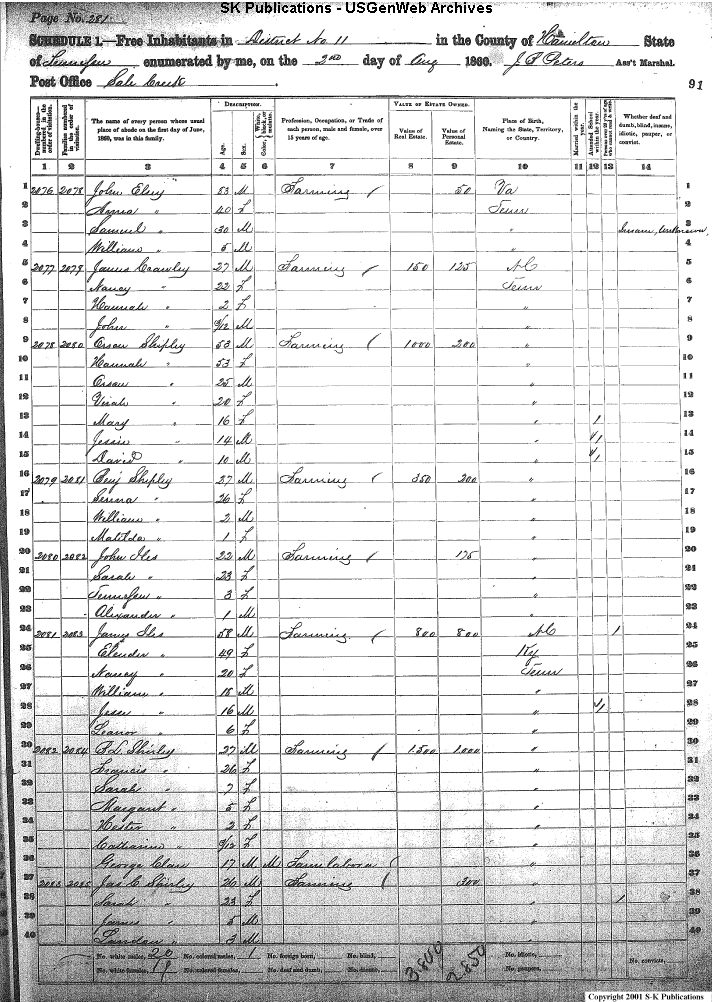 SK Publications - USGenWeb Archives
Page No. 281
SCHEDULE 1.—Free Inhabitants in District No 11 in the County of Hamilton State
of Tennessee enumerated by me, on the 2nd day of Aug 1860. J P Peters Ass't Marshal.
Post Office Sale Creek
91
Dwelling-houses— numbered in the order of visitation.
Families numbered in the order of visitation.
The name of every person whose usual place of abode on the first day of June, 1860, was in this family.
DESCRIPTION.
Age.
Sex.
Color, White, black, or mulatto.
Profession, Occupation, or Trade of each person, male and female, over 15 years of age.
VALUE OF ESTATE OWNED.
Value of Real Estate.
Value of Personal Estate.
Place of Birth, Naming the State, Territory, or Country.
Married within the year.
Attended School within the year.
Persons over 20 y'rs of age who cannot read & write.
Whether deaf and dumb, blind, insane, idiotic, pauper, or convict.
1 2 3 4 5 6 7 8 9 10 11 12 13 14
1 2076 2078 John 53 M Farming 50 Va 1
2 Anna " 40 F Tenn 2
3 Samuel " 30 M " Insane, Unknown 3
4 William " 5 M " 4
5 2077 2079 James Crawley 27 M Farming 150 125 NC 5
6 Nancy " 22 F Tenn 6
7 Hannah " 2 F " 7
8 John " /12 M " 8
9 2078 2080 Shipley 53 M Farming 1000 200 " 9
10 Hannah " 53 F " 10
11 " 25 M " 11
12 " 20 F " 12
13 Mary " 16 F " 1 13
14 Jessie " 14 M " 1 14
15 David " 10 M " 1 15
16 2079 2081 Benj Shipley 27 M Farming 350 200 " 16
17 " 26 F " 17
18 William " 2 M " 18
19 Matilda " 1 F " 19
20 2080 2082 John Iles 22 M Farming 175 " 20
21 Sarah " 23 F " 21
22 Tennessee " 3 F " 22
23 Alexander " 1 M " 23
24 2081 2083 James Iles 58 M Farming 800 800 NC 1 24
25 Elender " 49 F Ky 25
26 Nancy " 20 F Tenn 26
27 William " 18 M " 27
28 Jesse " 16 M " 1 28
29 " 6 F " 29
30 2082 2084 Shirley 27 M Farming 1500 1000 " 30
31 Francis " 26 F " 31
32 Sarah " 7 F " 32
33 Margaret " 5 F " 33
34 Hester " 2 F " 34
35 Catharine " /12 F " 35
36 George 17 M M Farm labora " 36
37 2083 2085 Jas C Shirley 26 M Farming 300 " 37
38 Sarah " 23 F " 1 38
39 James " 5 M " 39
40 Landon " 3 M " 40
No. white males, 20 No. colored males, 1 No. foreign born, No. blind, 3.800 2.850 No. idiotic, No. convicts,
No. white females, 19 No. colored females, No. deaf and dumb, No. insane, No. paupers,
Copyright 2001 S-K Publications